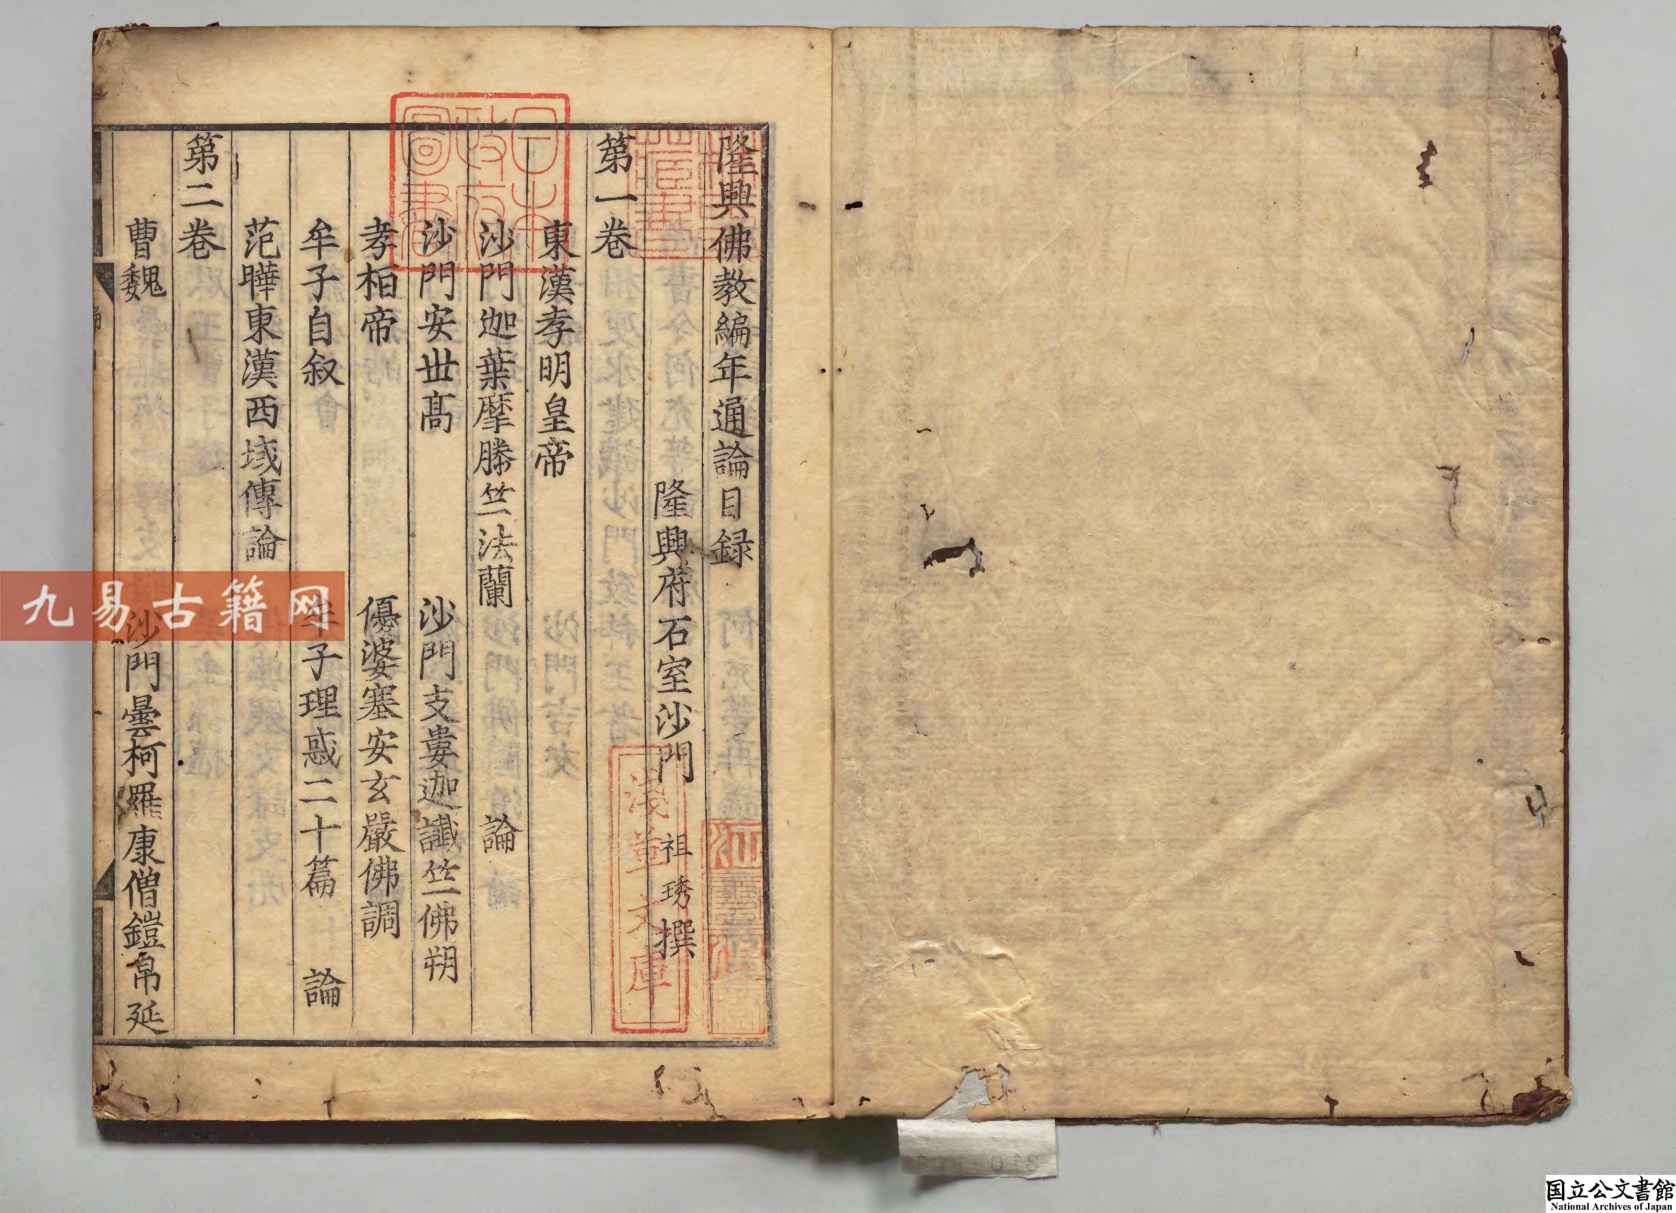 隆興佛教編年通論目録
隆興府石室沙門 祖琇撰
第一卷
東漢孝明皇帝
沙門迦葉摩勝竺法蘭 論
沙門安世高 沙門支婁迦讖竺佛朔
孝桓帝 優婆塞安玄嚴佛調
牟子自叙 牟子理惑二十篇 論
范曄東漢西域傳論
第二卷
曹魏 沙門曇柯羅康僧鎧帛延
日本政府圖書
淺草文庫
九易古籍网
国立公文書館
National Archives of Japan